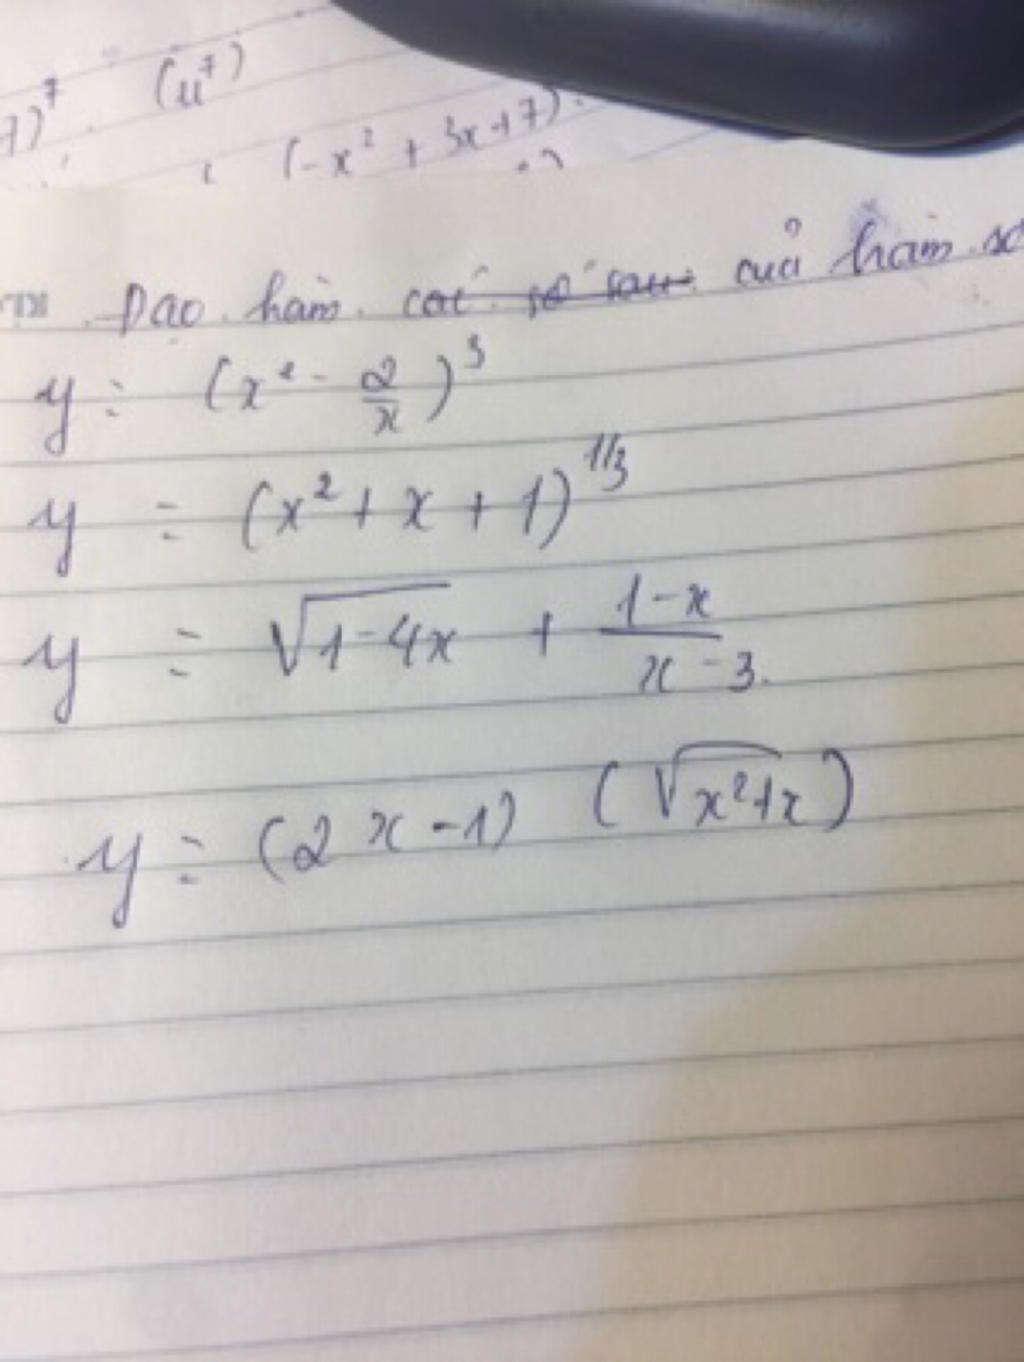 7)⁷ (u⁷)
(-x² + 3x+7)
Đạo hàm các số sau của hàm số
y = (x² - 2/x)³
y = (x² + x + 1)^1/3
y = √(1-4x) + (1-x)/(x-3).
y = (2x-1) (√(x²+x))